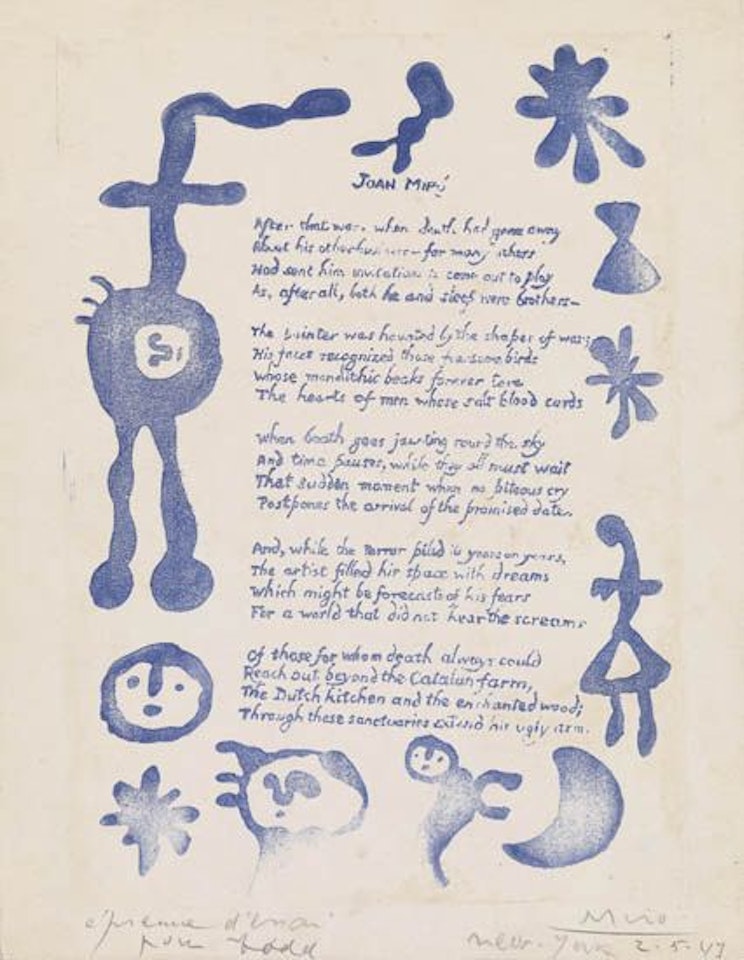 JOAN MIRÓ
After that war, when death had gone away
About his other business — for many others
Had sent him invitations to come out to play
As, after all, both he and sleep were brothers —
The painter was haunted by the shapes of war;
His faces recognized those fearsome birds
Whose monolithic beaks forever tore
The hearts of men whose salt blood curds
When death goes jaunting round the sky
And time pauses, while they all must wait
That sudden moment when no piteous cry
Postpones the arrival of the promised date.
And, while the terror piled its years on years,
The artist filled his space with dreams
Which might be forecasts of his fears
For a world that did not hear the screams
Of those for whom death always could
Reach out beyond the Catalan farm,
The Dutch kitchen and the enchanted wood;
Through these sanctuaries extend his ugly arm.
épreuve d'essai
pour Todd
Miró
New-York 2-5-47